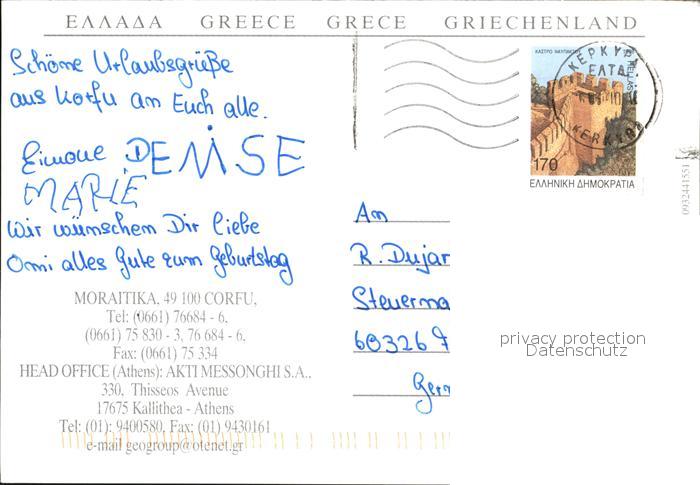 ΕΛΛΑΔΑ GREECE GRECE GRIECHENLAND
Schöne Urlaubsgrüße
aus Korfu an Euch alle.
Simone DENISE
MARIE
Wir wünschem Dir liebe
Omi alles Gute zum Geburtstag
MORAITIKA, 49 100 CORFU,
Tel: (0661) 76684 - 6,
(0661) 75 830 - 3, 76 684 - 6,
Fax: (0661) 75 334
HEAD OFFICE (Athens): AKTI MESSONGHI S.A..
330, Thisseos Avenue
17675 Kallithea - Athens
Tel: (01): 9400580, Fax: (01) 9430161
e-mail geogroup@otenet.gr
ΚΑΣΤΡΟ ΝΑΥΠΑΚΤΟΥ
HELLAS
ΚΕΡΚΥΡ
ΕΛΤΑ
KERKYRA
170
ΕΛΛΗΝΙΚΗ ΔΗΜΟΚΡΑΤΙΑ
0932441551
An
R. Dujar
Steuerma
60326 F
Germ
privacy protection
Datenschutz